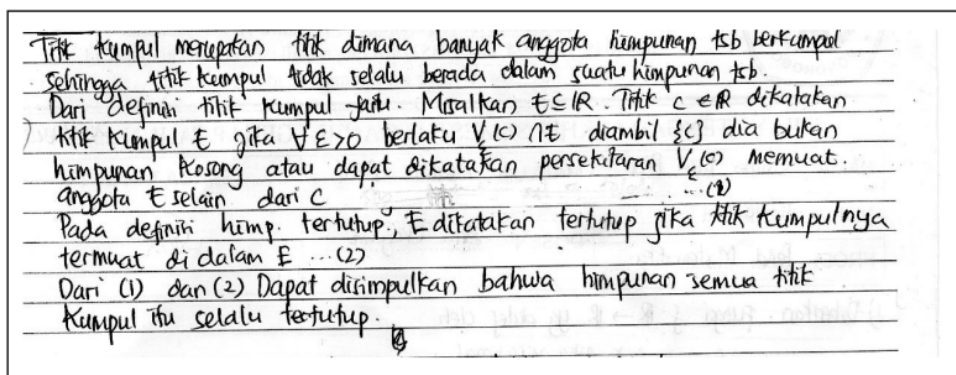 Titik kumpul merupakan titik dimana banyak anggota himpunan tsb berkumpul
sehingga titik kumpul tidak selalu berada dalam suatu himpunan tsb.
Dari definisi titik kumpul yaitu. Misalkan E ⊆ ℝ. Titik c ∈ ℝ dikatakan
titik kumpul E jika ∀ε>0 berlaku Vε(c) ∩ E diambil {c} dia bukan
himpunan kosong atau dapat dikatakan persekitaran Vε(c) memuat.
anggota E selain dari c ... (1)
Pada definisi himp. tertutup, E dikatakan tertutup jika titik kumpulnya
termuat di dalam E ... (2)
Dari (1) dan (2) Dapat disimpulkan bahwa himpunan semua titik
kumpul itu selalu tertutup.